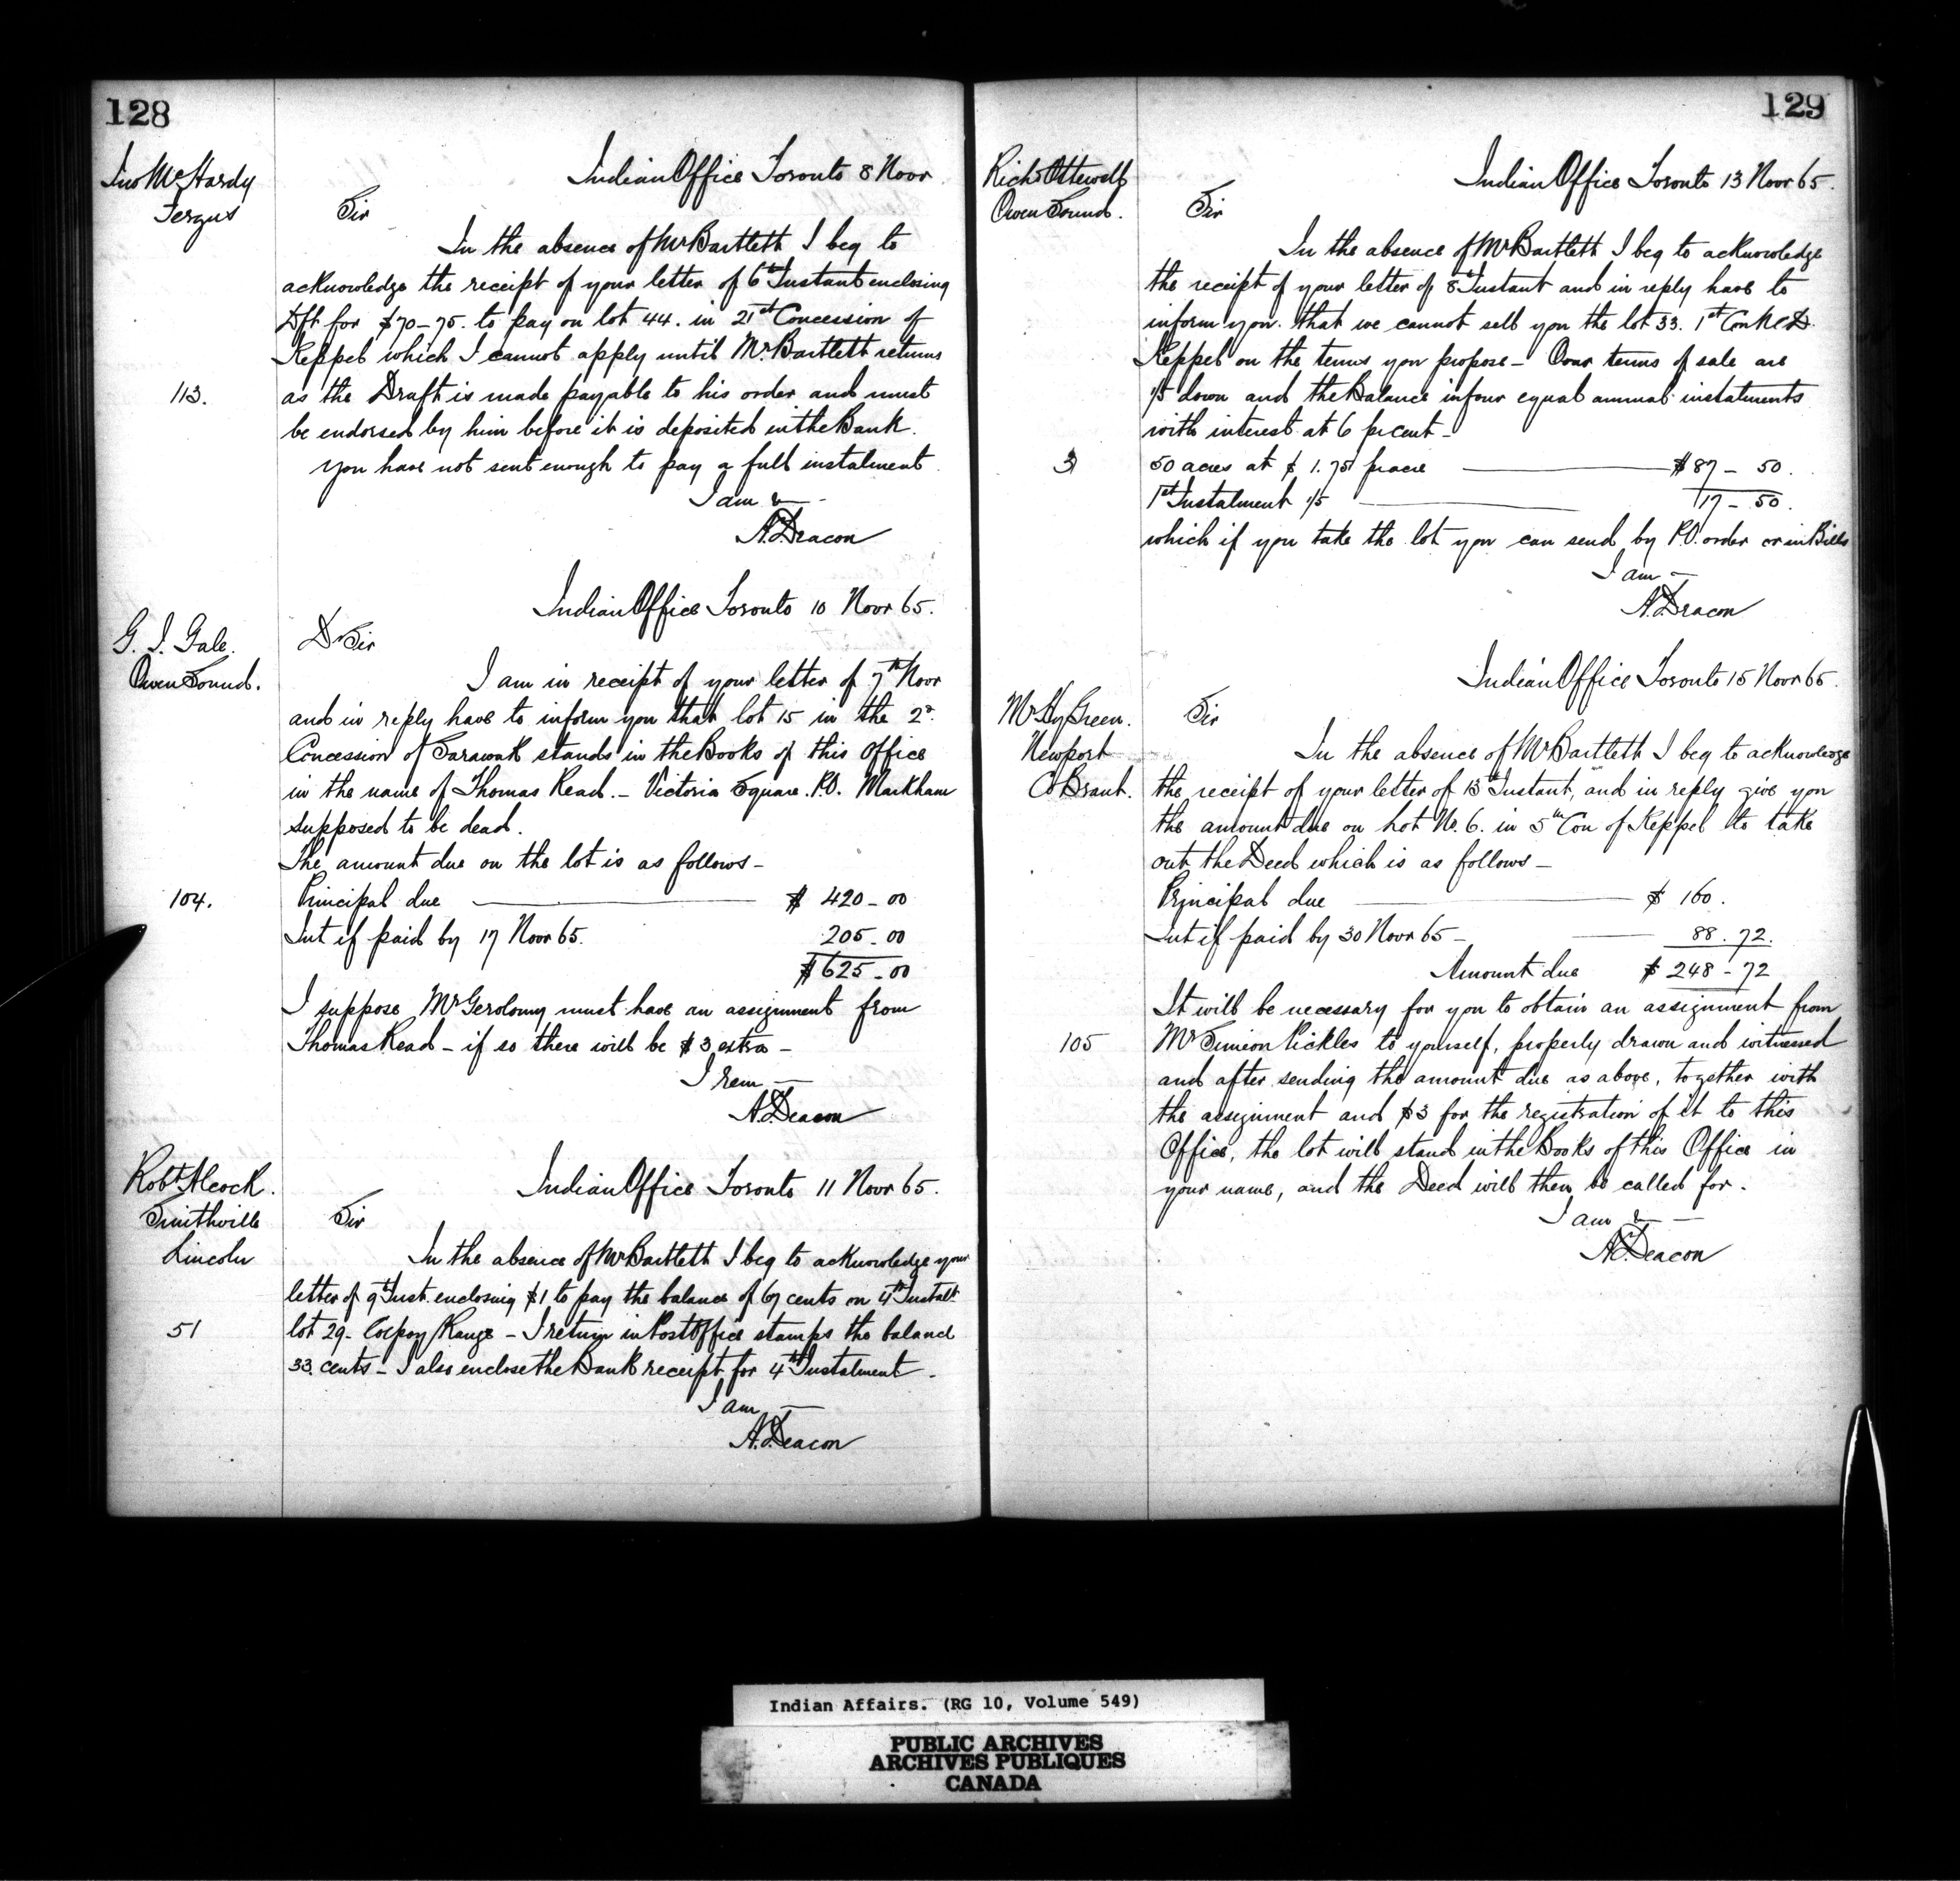 128
Jno McHardy
Fergus
Indian Office Toronto 8 Novr
Sir
In the absence of Mr Bartlett I beg to
acknowledge the receipt of your letter of 6th Instant enclosing
Dft for $70-75. to pay on lot 44. in 21st Concession of
Keppel which I cannot apply until Mr. Bartlett returns
113.
as the Draft is made payable to his order and must
be endorsed by him before it is deposited in the Bank.
You have not sent enough to pay a full instalment
I am &
A. Deacon
Indian Office Toronto 10 Novr 65.
G. J. Gale.
Owen Sound.
Dr Sir
I am in receipt of your letter of 7th Novr
and in reply have to inform you that lot 15 in the 2d
Concession of Sarawak stands in the Books of this Office
in the name of Thomas Read. - Victoria Square. P.O. Markham
supposed to be dead.
The amount due on the lot is as follows -
104.
Principal due $ 420-00
Int if paid by 17 Novr 65. 205-00
$625-00
I suppose Mr Gerolomy must have an assignment from
Thomas Read - if so there will be $3 extra -
I rem
A. Deacon
Robt Alcock.
Smithville
Lincoln
Indian Office Toronto 11 Novr 65.
Sir
In the absence of Mr Bartlett I beg to acknowledge your
letter of 9th Inst. enclosing $1 to pay the balance of 67 cents on 4th Instalt
51
lot 29- Colpoy Range - I return in Post Office stamps the balance
33 cents - I also enclose the Bank receipt for 4th Instalment.
I am
A. Deacon
129
Richd Ottewell
Owen Sound.
Indian Office Toronto 13 Novr 65.
Sir
In the absence of Mr Bartlett I beg to acknowledge
the receipt of your letter of 8th Instant and in reply have to
inform you. that we cannot sell you the lot 33. 1st Con N C D.
Keppel on the terms you propose - Our terms of sale are
1/5 down and the Balance in four equal annual instalments
with interest at 6 prcent -
3
50 acres at $ 1.75 pr acre $87 - 50.
1st Instalment 1/5 17 - 50.
which if you take the lot you can send by P.O. order or in Bills
I am -
A. Deacon
Indian Office Toronto 15 Novr 65.
Mr Hy Green.
Newport
Co Brant.
Sir
In the absence of Mr Bartlett I beg to acknowledge
the receipt of your letter of 13th Instant, and in reply give you
the amount due on Lot No. 6. in 5th Con of Keppel to take
out the Deed which is as follows -
Principal due $ 160.
Int if paid by 30 Novr 65 - 88.72.
Amount due $ 248-72
It will be necessary for you to obtain an assignment from
105
Mr Simeon Pickles to yourself, properly drawn and witnessed
and after sending the amount due as above, together with
the assignment and $3 for the registration of it to this
Office, the lot will stand in the Books of this Office in
your name, and the Deed will then be called for.
I am &
A. Deacon
Indian Affairs. (RG 10, Volume 549)
PUBLIC ARCHIVES
ARCHIVES PUBLIQUES
CANADA